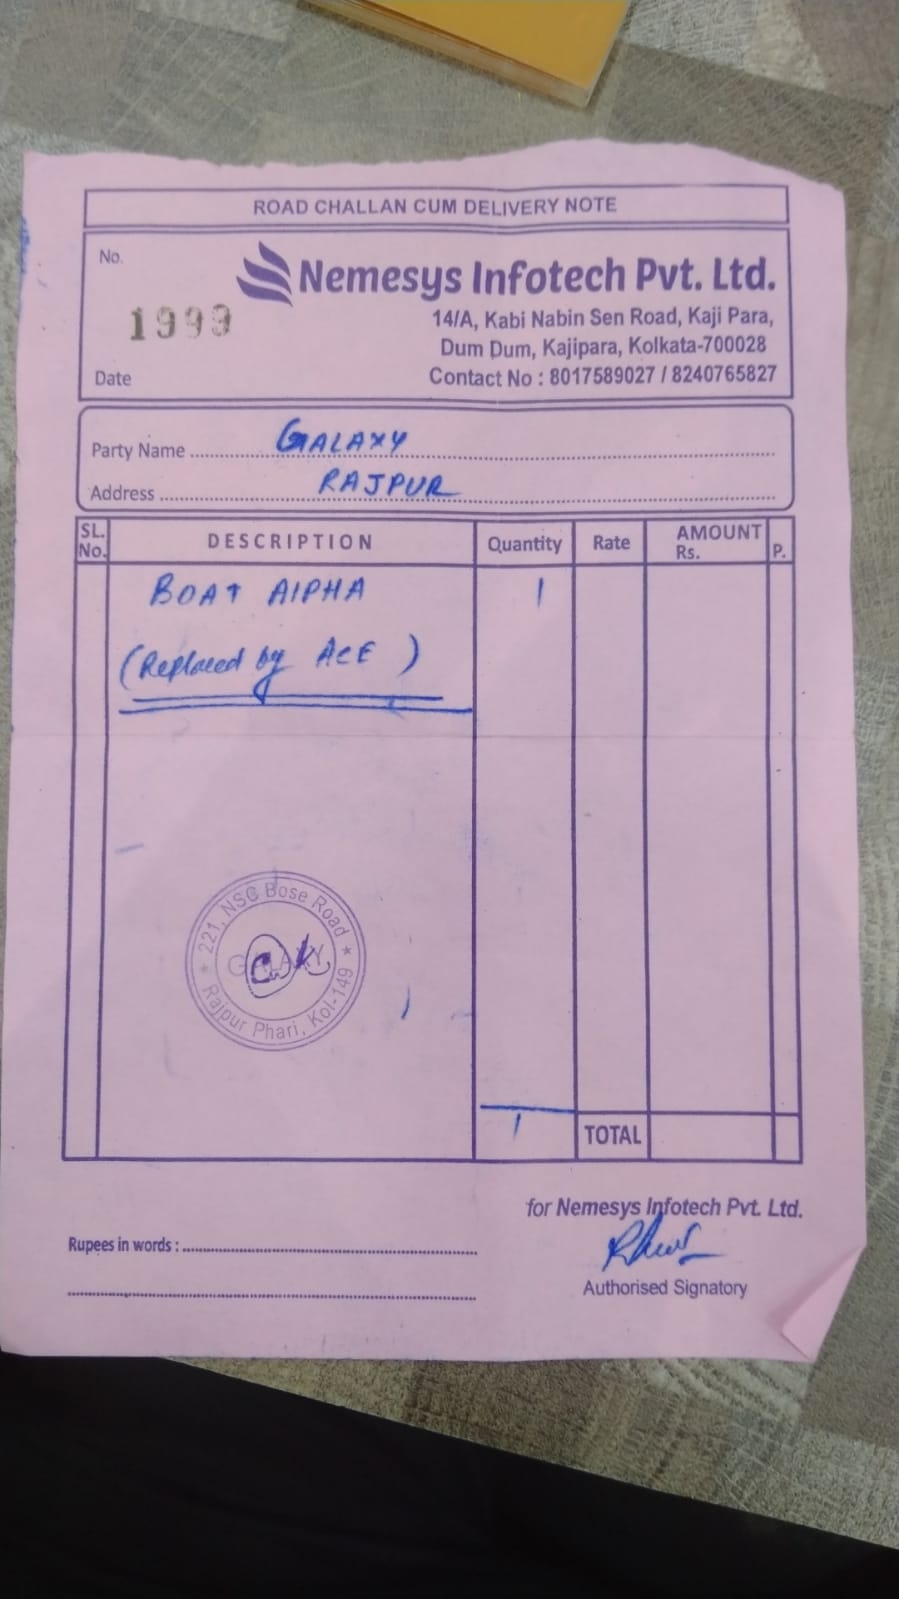 ROAD CHALLAN CUM DELIVERY NOTE
No.
Nemesys Infotech Pvt. Ltd.
1999
14/A, Kabi Nabin Sen Road, Kaji Para,
Dum Dum, Kajipara, Kolkata-700028
Date
Contact No : 8017589027 / 8240765827
Party Name GALAXY
Address RAJPUR
SL. No. DESCRIPTION Quantity Rate AMOUNT Rs. P.
BOAT AlPHA 1
(Replaced by ACE)
221, NSC Bose Road
GALAXY
Rajpur Phari, Kol-149
1 TOTAL
for Nemesys Infotech Pvt. Ltd.
Rupees in words :
Authorised Signatory